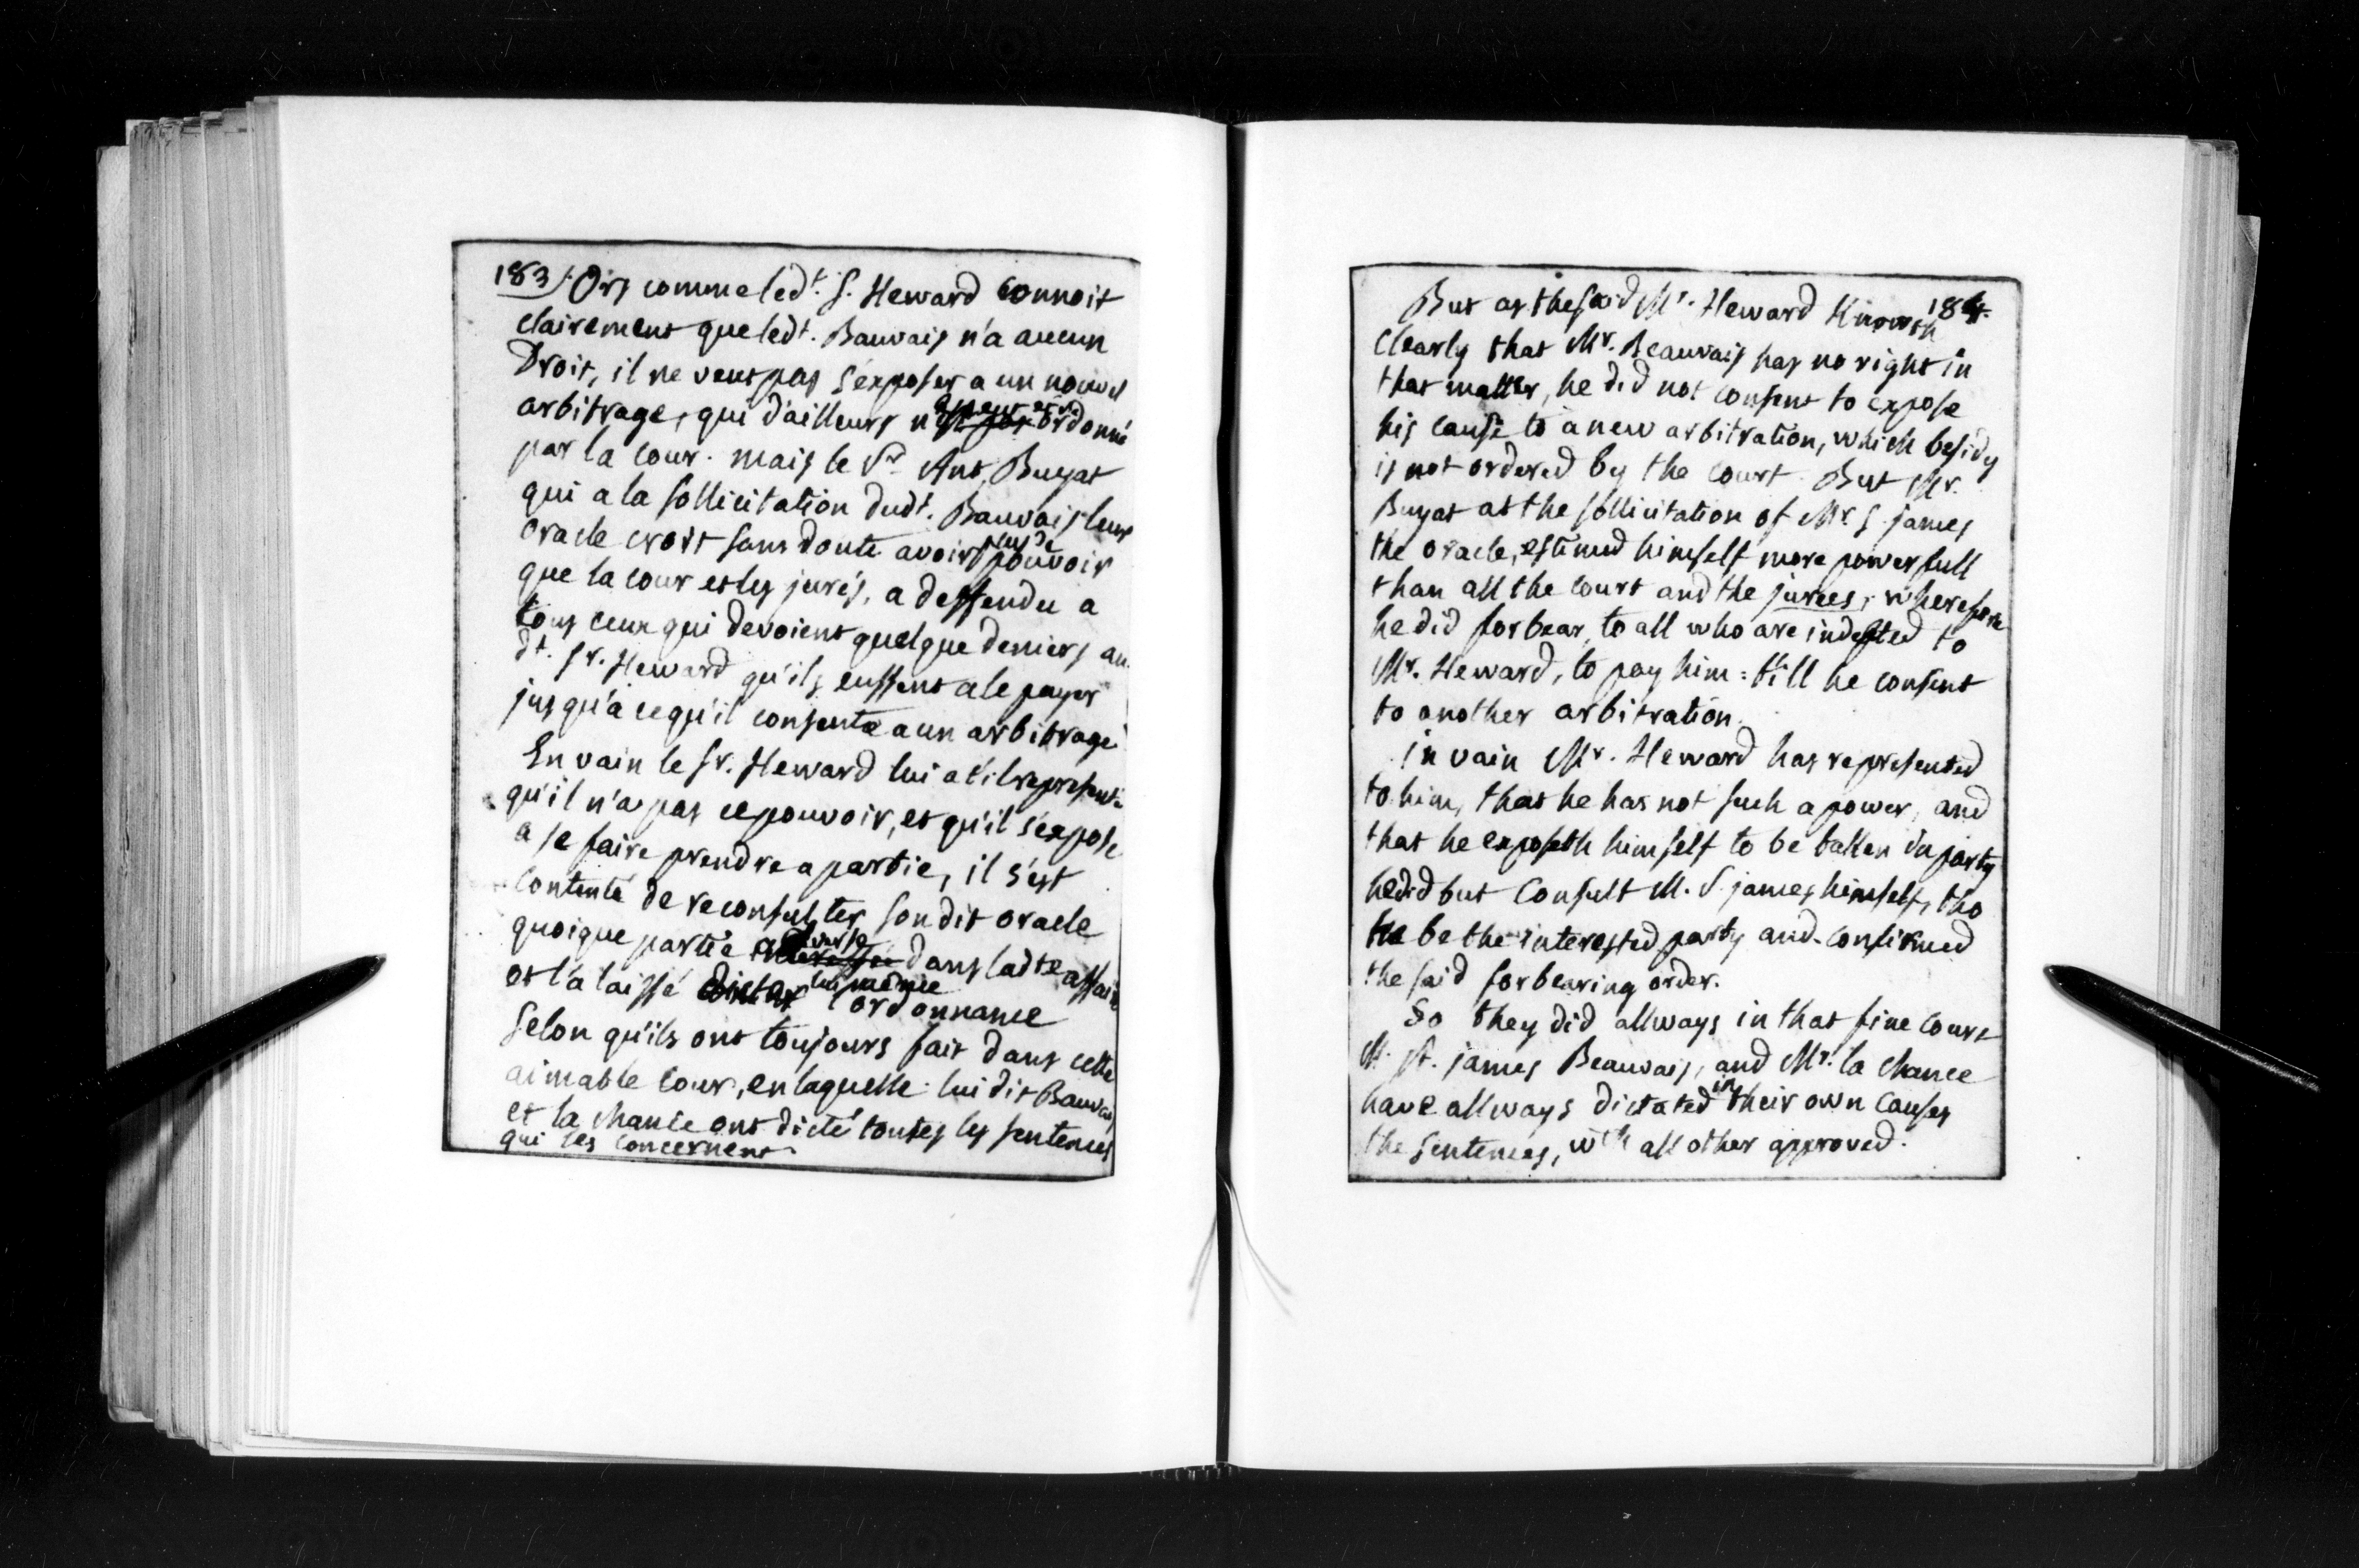 183/. Ors comme led.t S. Heward Connoit
clairement que ledt. Bauvais n'a aucun
Droit, il ne veut pas s'exposer a un nouvel
arbitrage, qui d'ailleurs n'est pas ordonné
par la cour. mais le Sr. Ant. Buyat
qui a la sollicitation dudt. Bauvais leur
oracle croit sans doute avoir plus de pouvoir
que la cour et les jurés, a deffendu a
tous ceux qui devoient quelque deniers au
dt. Sr. Heward qu'ils eussent a le payer
jusqu'à ce qu'il consente a un arbitrage
En vain le Sr. Heward lui at'il representé
qu'il n'a pas ce pouvoir, et qu'il s'expose
a se faire prendre a partie, il s'est
contenté de reconsulter son dit oracle
quoique partie adverse dans ladte affaire
et l'a laissé dicter lui même l'ordonnance
Selon qu'ils ont toujours fait dans cette
aimable cour, en laquelle lui dit Bauvais
et la chance ont dicté toutes les sentences
qui les concernent.
184.
But as the said Mr. Heward Knoweth
Clearly that Mr. Beauvais has no right in
that matter, he did not consent to expose
his cause to a new arbitration, which besids
is not ordered by the court. But Mr.
Buyat at the sollicitation of Mr. S. james
the oracle, estimed himself more powerfull
than all the court and the jurees, wherefore
he did forbear, to all who are indebted to
Mr. Heward, to pay him: till he consent
to another arbitration.
in vain Mr. Heward has represented
to him, that he has not such a power, and
that he exposeth himself to be taken in party
he did but Consult M. S. james himself, tho
he be the interested party and confirmed
the said forbearing order.
So they did allways in that fine Court
M. St. james Beauvais, and Mr. la chance
have allways dictated in their own Causes
the Sentences, wth all other approved.